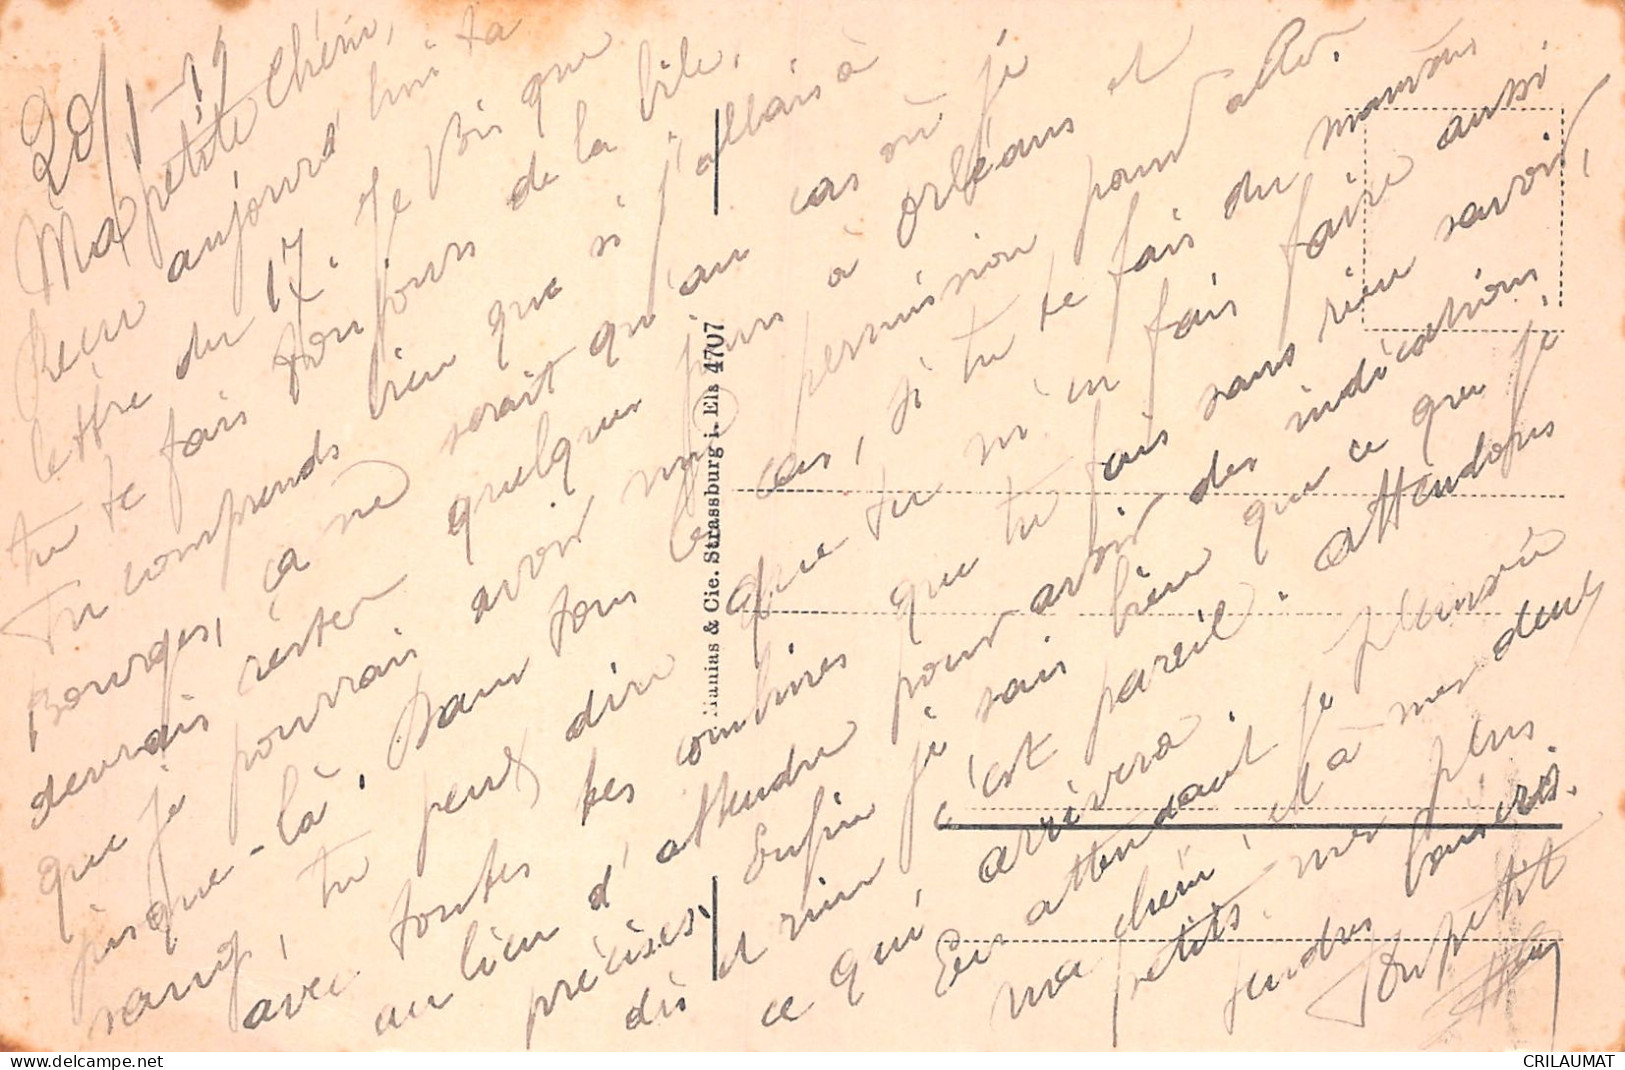 20/1-19
Ma petite chérie,
Recu aujourd'hui ta
lettre du 17. Je vois que
tu te fais toujours de la bile.
Tu comprends bien que si j'allais à
Bourges, ça ne serait qu'au cas où je
devrais rester quelques jours à Orléans et
que je pourrais avoir une permission pour aller
jusque-là. Dans tous les cas, si tu te fais du mauvais
sang, tu peux dire que tu m'en fais faire aussi
avec toutes tes combines que tu fais sans rien savoir,
au lieu d'attendre pour avoir des indications
précises. Enfin je sais bien que ce que je
dis et rien c'est pareil. Attendons
ce qui arrivera.
En attendant je t'envoie
ma chérie, et à mes deux
petits mes plus
tendres baisers.
Ton petit
Mannias & Cie. Strassburg i. Els 4707
delcampe.net
CRILAUMAT